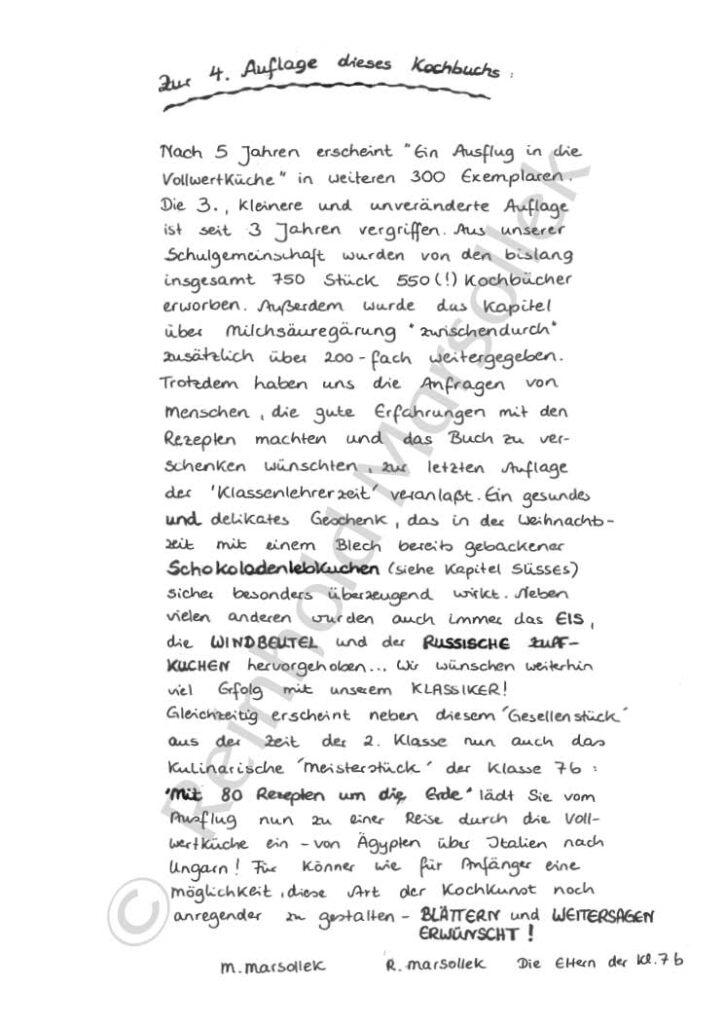 Zur 4. Auflage dieses Kochbuchs:
Nach 5 Jahren erscheint "Ein Ausflug in die
Vollwertküche" in weiteren 300 Exemplaren.
Die 3., kleinere und unveränderte Auflage
ist seit 3 Jahren vergriffen. Aus unserer
Schulgemeinschaft wurden von den bislang
insgesamt 750 Stück 550 (!) Kochbücher
erworben. Außerdem wurde das Kapitel
über Milchsäuregärung "zwischendurch"
zusätzlich über 200-fach weitergegeben.
Trotzdem haben uns die Anfragen von
Menschen, die gute Erfahrungen mit den
Rezepten machten und das Buch zu ver-
schenken wünschten, zur letzten Auflage
der 'Klassenlehrerzeit' veranlaßt. Ein gesundes
und delikates Geschenk, das in der Weihnachts-
zeit mit einem Blech bereits gebackener
Schokoladenlebkuchen (siehe Kapitel Süsses)
sicher besonders überzeugend wirkt. Neben
vielen anderen wurden auch immer das EIS,
die WINDBEUTEL und der RUSSISCHE ZUPF-
KUCHEN hervorgehoben... Wir wünschen weiterhin
viel Erfolg mit unserem KLASSIKER!
Gleichzeitig erscheint neben diesem 'Gesellenstück'
aus der Zeit der 2. Klasse nun auch das
kulinarische 'Meisterstück' der Klasse 7b:
"Mit 80 Rezepten um die Erde" lädt Sie vom
Ausflug nun zu einer Reise durch die Voll-
wertküche ein - von Ägypten über Italien nach
Ungarn! Für Könner wie für Anfänger eine
Möglichkeit, diese Art der Kochkunst noch
anregender zu gestalten - BLÄTTERN und WEITERSAGEN
ERWÜNSCHT!
M. Marsollek R. Marsollek Die Eltern der Kl. 7b
© Reinhold Marsollek